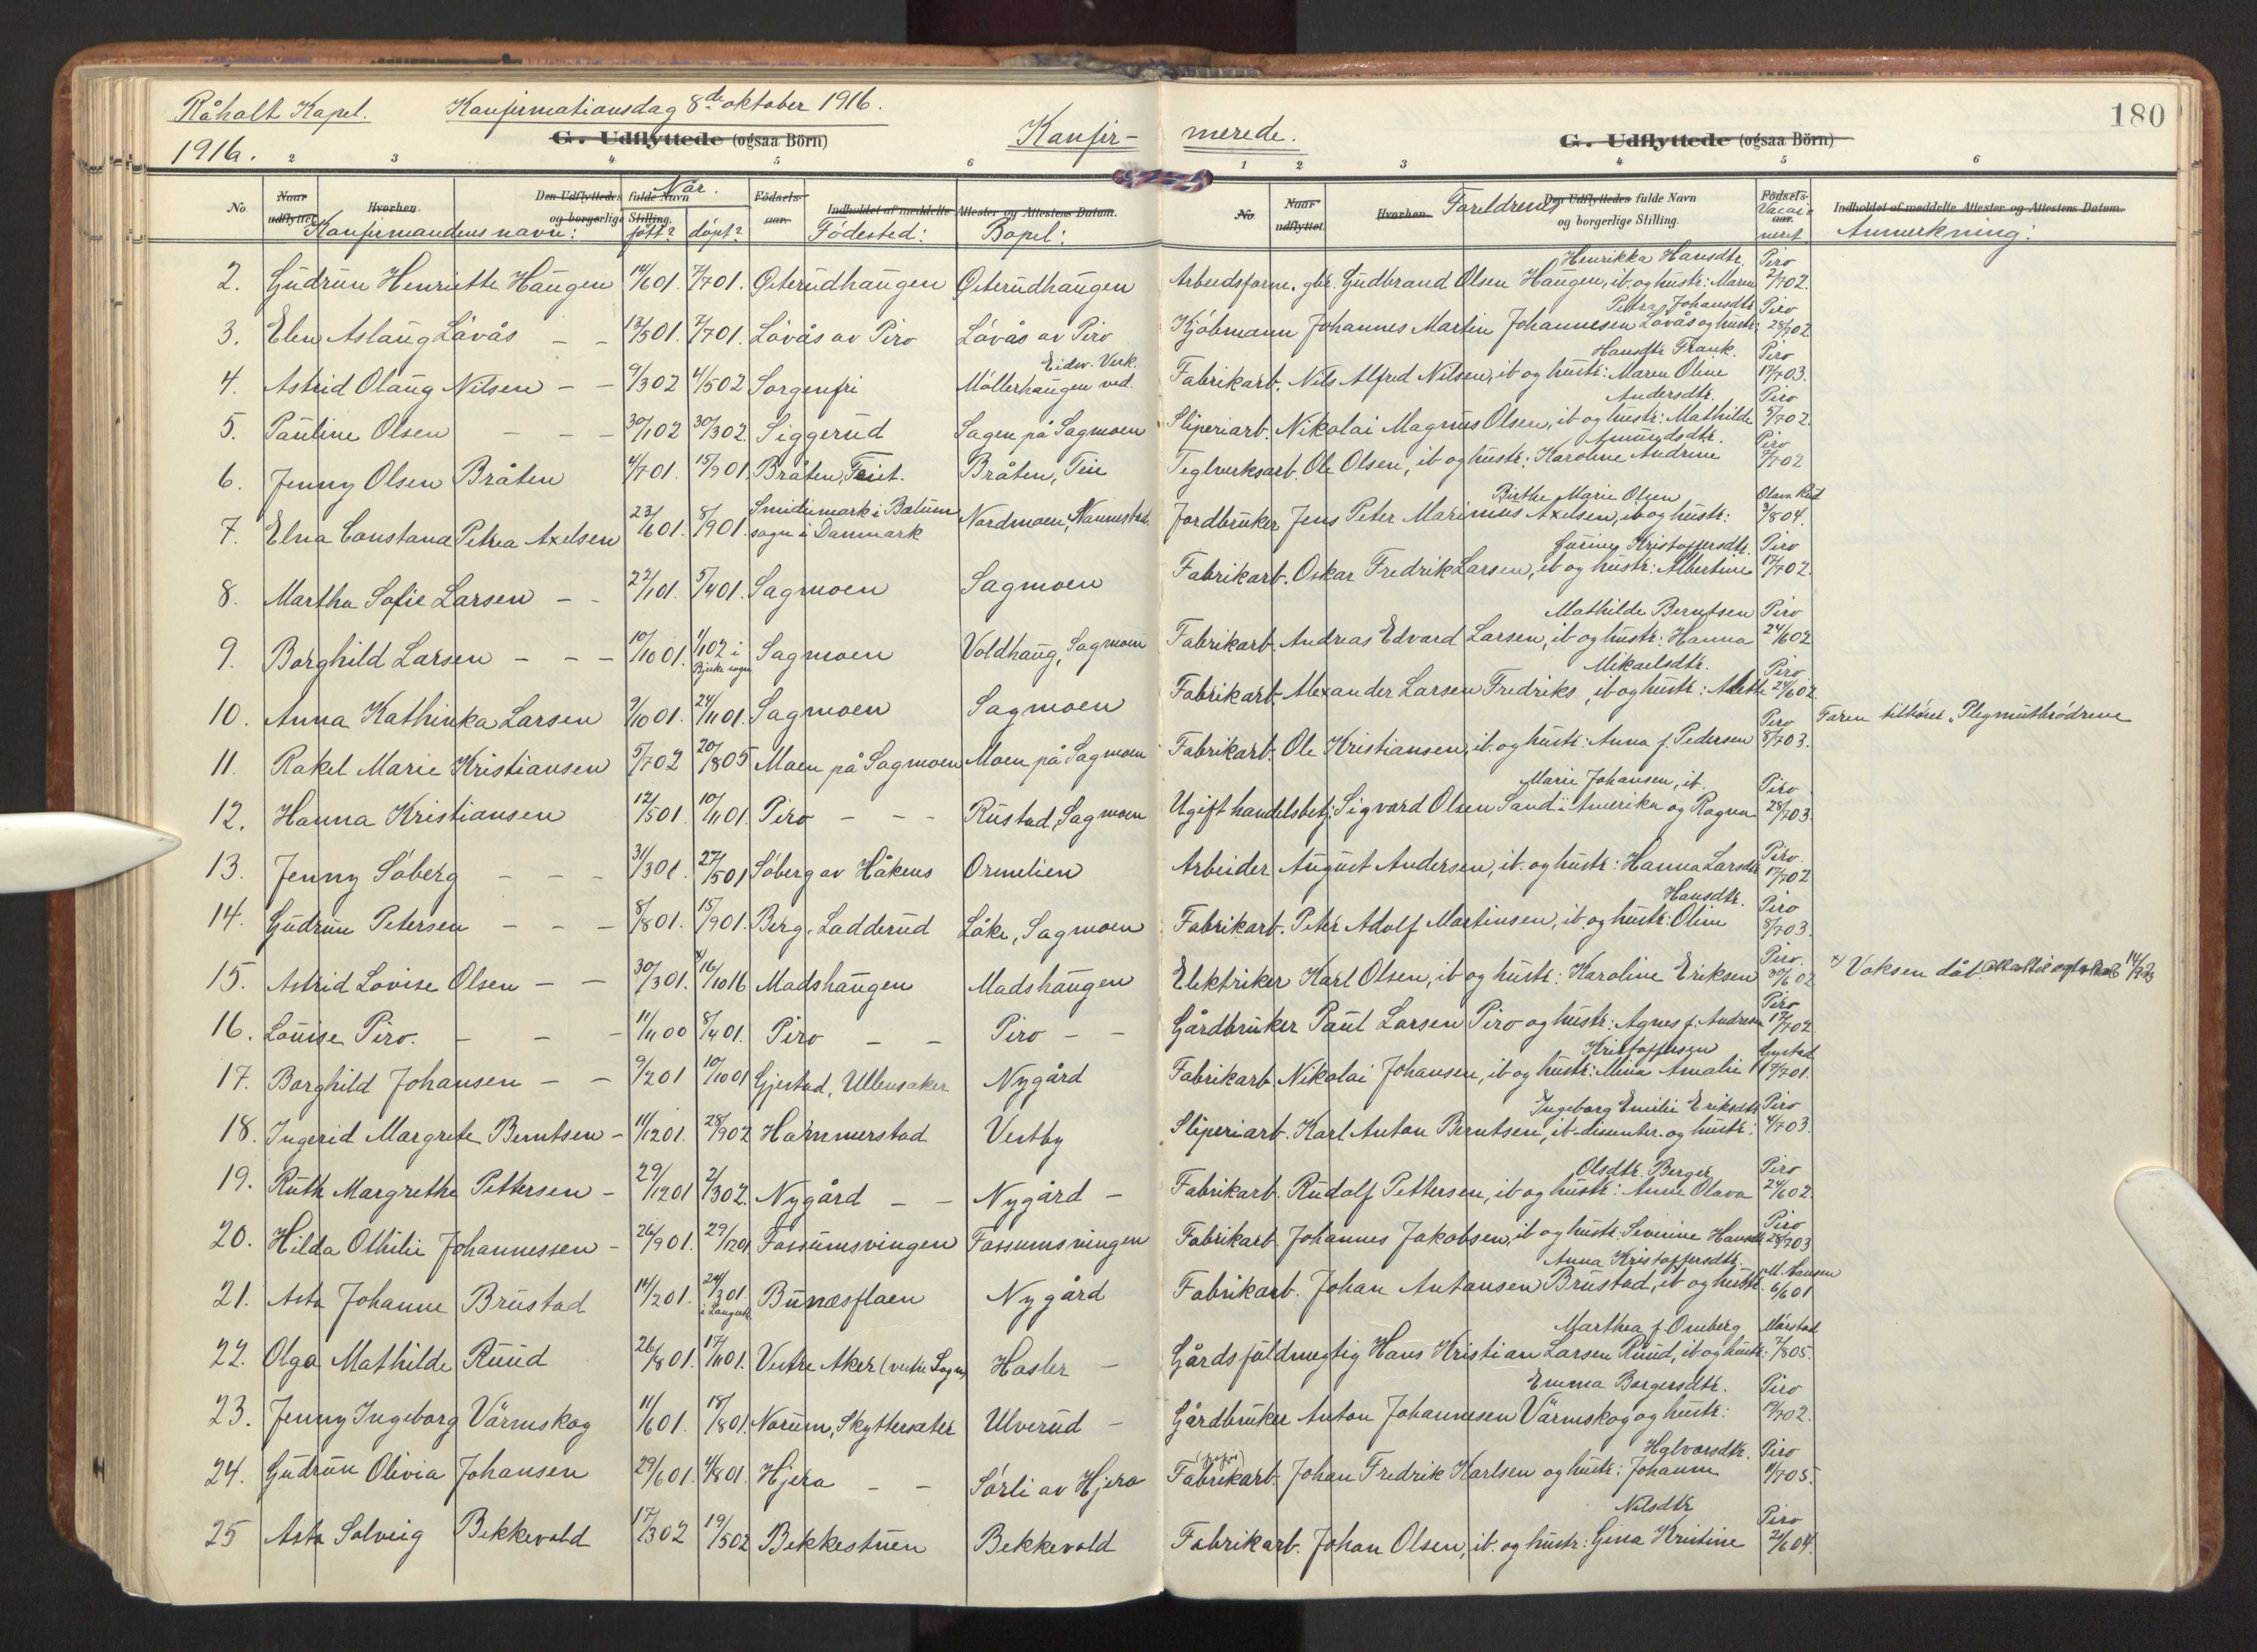 180
Råholt Kapel. Konfirmationsdag 8de oktober 1916.
1916.
G. Udflyttede (ogsaa Börn)
Konfir- merede.
G. Udflyttede (ogsaa Börn)
2 3 4 5 6 1 2 3 4 5 6
No. Naar udflyttet Hvorhen. Den Udflyttedes fulde Navn og borgerlige Stilling. Födsels-aar. Indholdet af meddelte Attester og Attestens Datum.
No Naar udflyttet Hvorhen. Den Udflyttedes fulde Navn og borgerlige Stilling. Födsels-aar. Indholdet af meddelte Attester og Attestens Datum.
Konfirmandens navn: Når. født? døpt? Fødested: Bopel: Foreldrenes Vacsineret Anmerkning:
2. Gudrun Henriette Haugen 14/6 01. 7/7 01. Østerudhaugen Østerudhaugen Arbeidsform. gbr. Gudbrand Olsen Haugen, ib. og hustr: Maren Henrikka Hansdtr. Piro 2/7 02.
3. Elen Aslaug Løvås – – 13/5 01. 7/7 01. Løvås av Piro Løvås av Piro Kjøbmann Johannes Martin Johannesen Løvås og hustr: Petra Johansdtr. Piro 28/7 02
4. Astrid Olaug Nilsen – – 9/3 02 4/5 02 Sorgenfri Møllerhaugen ved Eidsv. Verk. Fabrikarb. Nils Alfred Nilsen, ib og hustr: Maren Oline Hansdtr Frank. Piro 17/7 03.
5. Pauline Olsen – – – 30/1 02 30/3 02. Siggerud Sagen på Sagmoen Sliperiarb. Nikolai Magnus Olsen, ib og hustr: Mathilde Andersdtr. Piro 5/7 02.
6. Jenny Olsen Bråten 4/7 01. 15/9 01. Bråten, Teiet. Bråten, Tæie Teglverksarb. Ole Olsen, ib og hustr: Karoline Andrine Amundsdtr. Piro 7/7 02
7. Elna Constana Petrea Axelsen 23/6 01. 8/9 01. Smidemark i Bælum sogn i Danmark Nordmoen, Nannestad. Jordbruker Jens Peter Marinus Axelsen, ib og hustr: Birthe Marie Olsen Olava Rud 3/8 04.
8. Martha Sofie Larsen – – 22/1 01. 5/4 01. Sagmoen Sagmoen Fabrikarb. Oskar Fredrik Larsen, ib og hustr: Albertine Kristoffersdtr. Piro 17/7 02.
9. Borghild Larsen – – – 10/10 01. 1/1 02 i sogn Sagmoen Voldhaug, Sagmoen Fabrikarb. Andreas Edvard Larsen, ib og hustr: Hanna Mathilde Berntsen Piro 24/6 02
10. Anna Kathinka Larsen 9/10 01. 24/11 01. Sagmoen Sagmoen Fabrikarb. Alexander Larsen Fredriks, ib og hustr: Alette Mikaelsdtr. Piro 24/6 02
11. Rakel Marie Kristiansen 5/7 02 20/8 05 Moen på Sagmoen Moen på Sagmoen Fabrikarb. Ole Kristiansen, ib. og hustr: Anna f. Pedersen Piro 8/7 03. Faren tilhører Plymuthbrødrene
12. Hanna Kristiansen 12/5 01. 10/11 01. Piro – – – Rustad, Sagmoen Ugift handelsbetj. Sigvard Olsen Sand i Amerika og Ragna Marie Johansen, ib. Piro 28/7 03.
13. Jenny Søberg – – – 31/3 01. 27/5 01 Søberg av Håkens Ormelien Arbeider August Andersen, ib. og hustr: Hanna Larsdtr. Piro. 17/7 02
14. Gudrun Petersen – – – 8/8 01. 15/9 01. Berg. Ladderud Låke, Sagmoen Fabrikarb. Peter Adolf Martinsen, ib og hustr: Oline Hansdtr. Piro 8/7 03.
15. Astrid Lovise Olsen – – 30/3 01. x/ 16/10 16 Madshaugen Madshaugen Elektriker Karl Olsen, ib og hustr: Karoline Eriksen Piro. 30/6 02 x/ Voksen dåb.
16. Louise Piro. – – – 11/11 00 8/4 01. Piro – – Piro – – Gårdbruker Paul Larsen Piro og hustr: Agnes f. Andresen Piro 17/7 02
17. Borghild Johansen – – 9/2 01 10/10 01 Gjestad, Ullensaker Nygård Fabrikarb. Nikolai Johansen, ib og hustr: Mina Amalie Kristoffersen Gjestad 17/7 01.
18. Ingerid Margrete Berntsen – 11/12 01. 28/9 02 Hammerstad Vestby Sliperiarb. Karl Anton Berntsen, ib dissenter. og hustr: Ingeborg Emilie Eriksdtr Piro 4/7 03.
19. Ruth Margrethe Pettersen – 29/12 01 2/3 02. Nygård – – Nygård – Fabrikarb. Rudolf Pettersen, ib og hustr: Anne Olava Olsdtr. Berger Piro 24/6 02.
20. Hilda Othilie Johannessen – 26/9 01. 29/12 01 Fossumsvingen Fossumsvingen Fabrikarb. Johannes Jakobsen, ib og hustr: Severine Hansdtr Piro 28/7 03
21. Asta Johanne Brustad 14/2 01. 24/3 01. i Langset. Bunæsflaen Nygård Fabrikarb. Johan Antonsen Brustad, ib og hustr: Anna Kristoffersdtr. M. Hansen 6/6 01
22. Olga Mathilde Ruud 26/8 01. 17/11 01. Vestre Aker (vestre Sogn) Hasler – Gårdsfuldmegtig Hans Kristian Larsen Ruud, ib og hustr: Marthea f. Omberg Mørstad 7/8 05.
23. Jenny Ingeborg Värmskog 11/6 01. 18/8 01. Norum, Skyttersæter Ulverud – Gårdbruker Anton Johannesen Värmskog og hustr: Emma Borgersdtr. Piro 19/7 02.
24. Gudrun Olivia Johansen 29/6 01. 4/8 01. Hjera – – Sørli av Hjera Fabrikarb. Johan Fredrik Karlsen og hustr: Johanne Halvorsdtr. Piro 11/7 05.
25 Asta Solveig Bekkevold 17/3 02 19/5 02 Bekkestuen Bekkevold Fabrikarb. Johan Olsen, ib. og hustr: Gina Kristine Nilsdtr Piro 21/6 04.